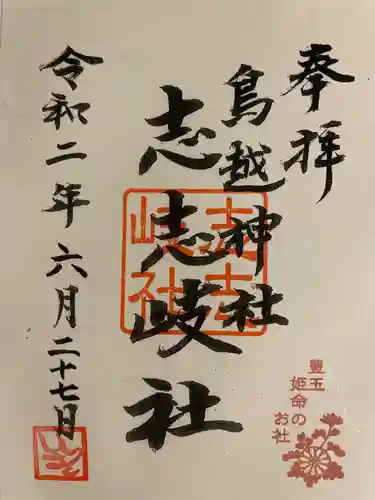 奉拝
鳥越神社
志志岐社
令和二年六月二十七日
志志岐社
豊玉
姫命の
お社